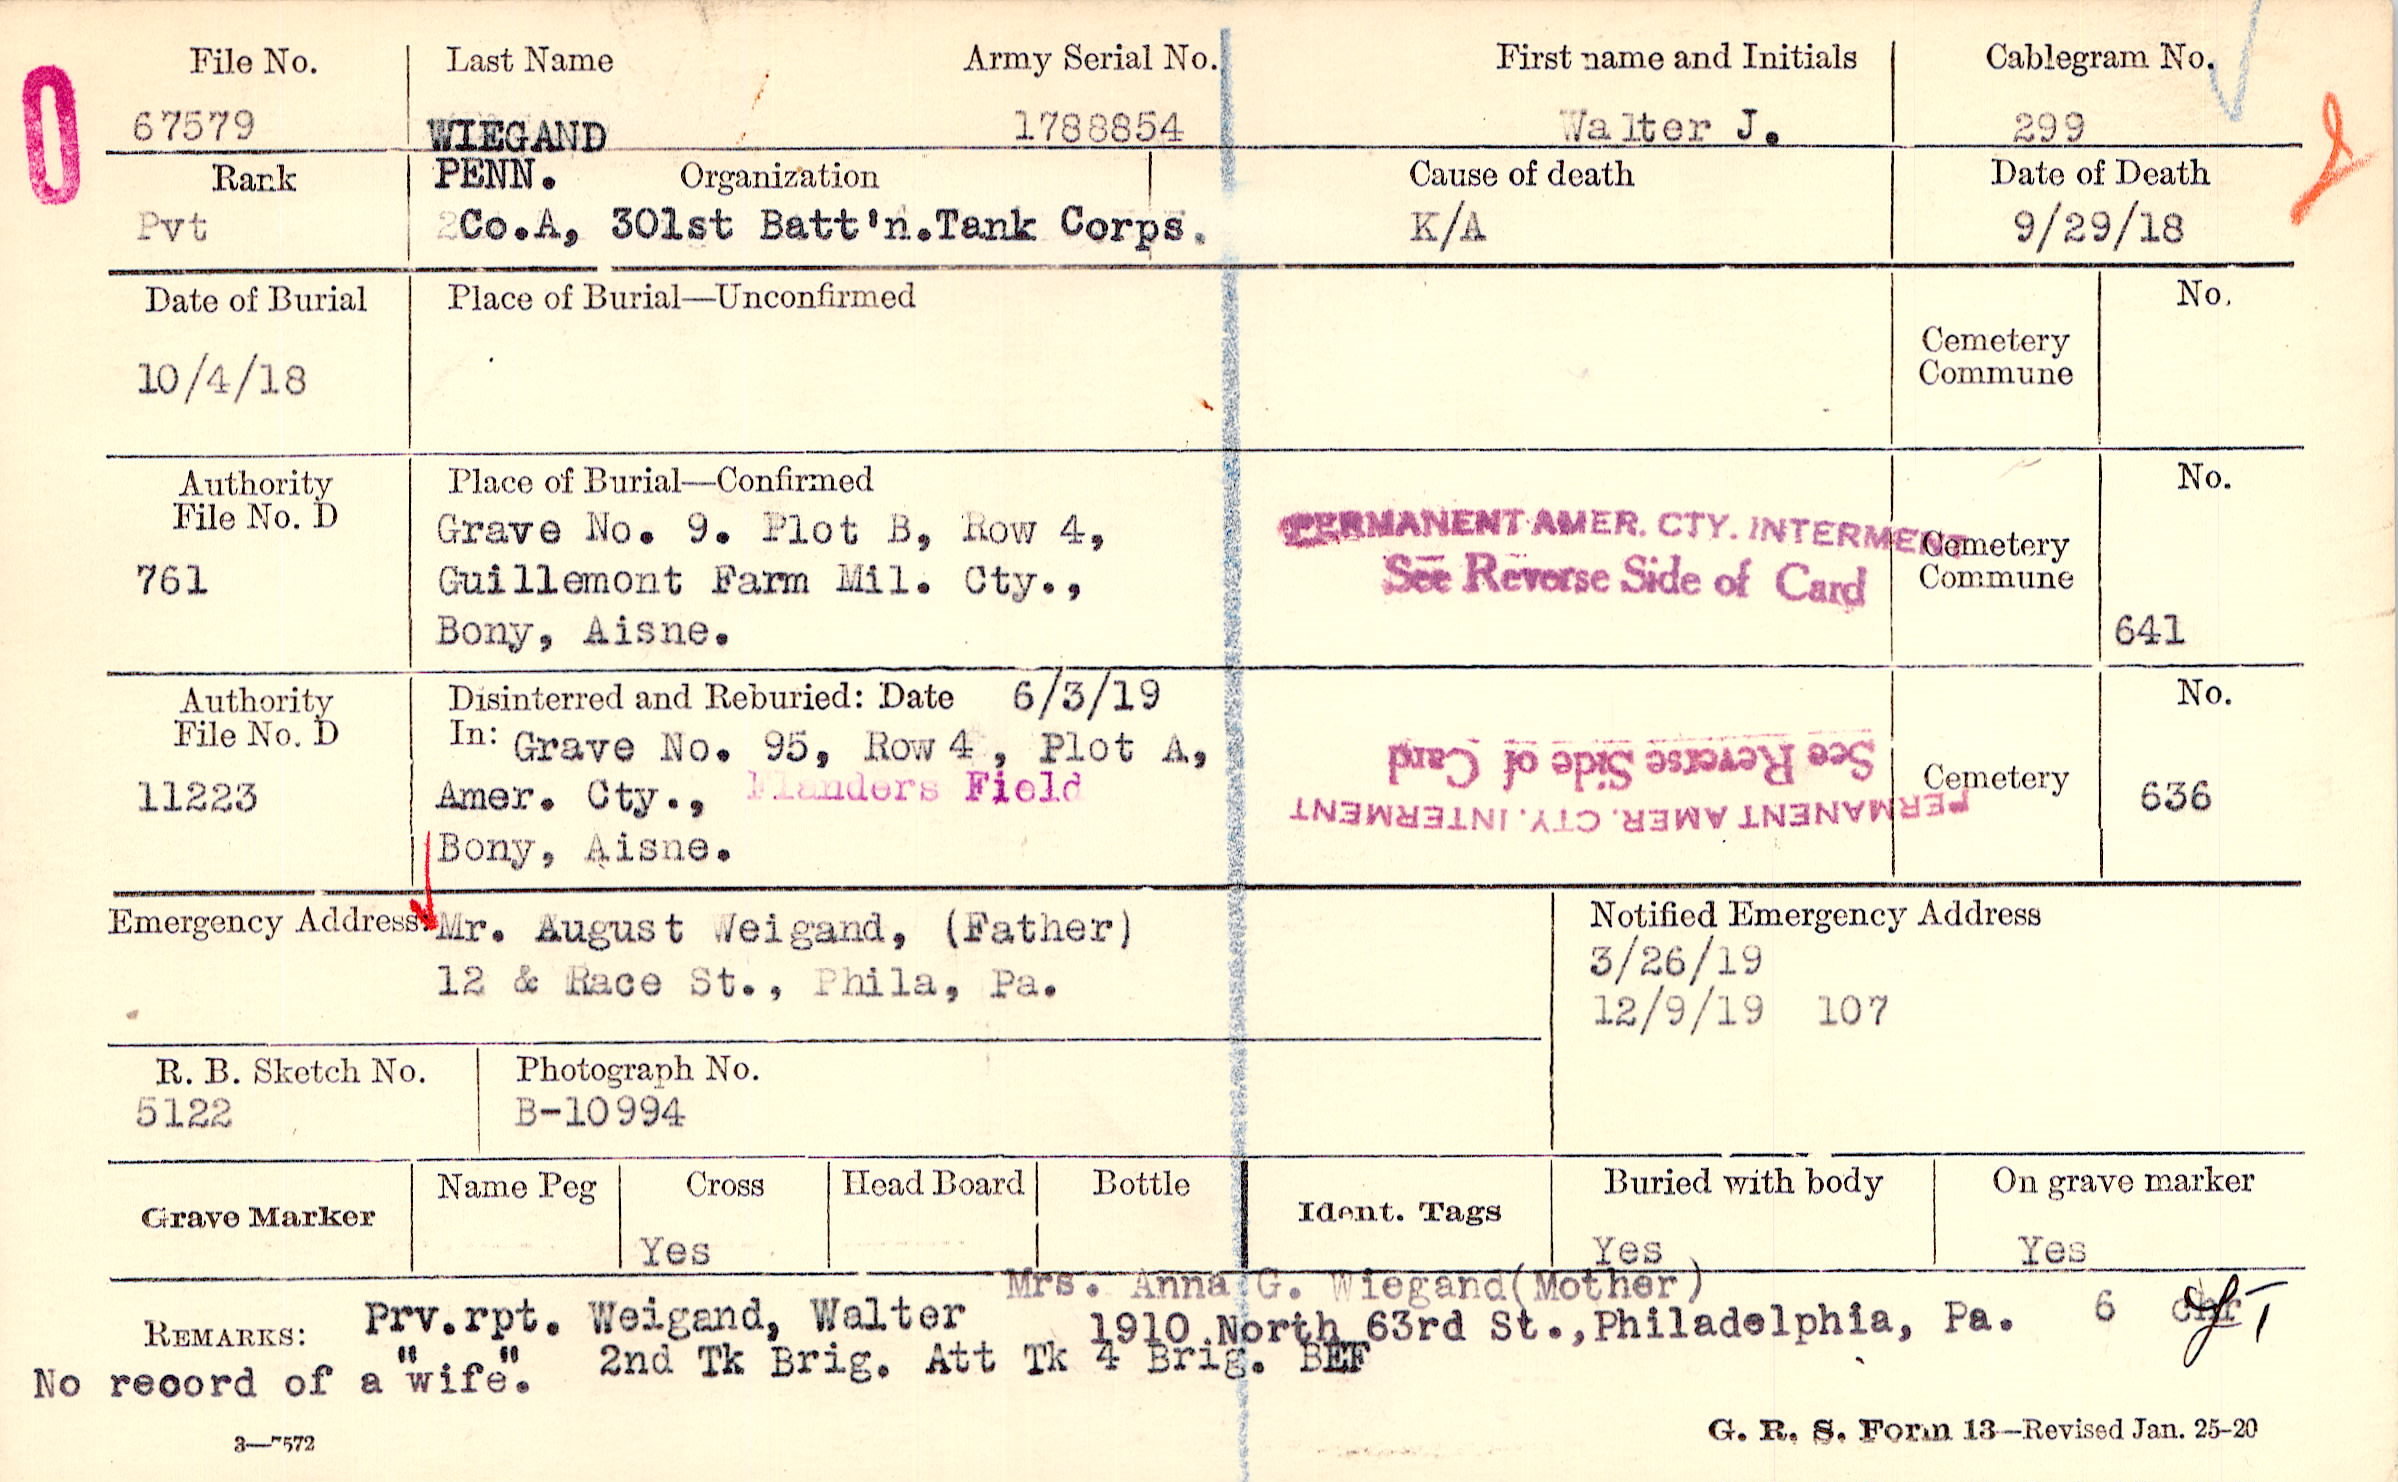 File No. Last Name Army Serial No. First name and Initials Cablegram No.
67579 WIEGAND 1788854 Walter J. 299
Rank PENN. Organization Cause of death Date of Death
Pvt Co.A, 301st Batt'n.Tank Corps. K/A 9/29/18
Date of Burial Place of Burial—Unconfirmed No.
Cemetery
Commune
10/4/18
Authority Place of Burial—Confirmed No.
File No. D Grave No. 9. Plot B, Row 4, PERMANENT AMER. CTY. INTERMENT Cemetery
761 Guillemont Farm Mil. Cty., See Reverse Side of Card Commune
Bony, Aisne. 641
Authority Disinterred and Reburied: Date 6/3/19 No.
File No. D In: Grave No. 95, Row 4, Plot A, See Reverse Side of Card Cemetery
11223 Amer. Cty., Flanders Field PERMANENT AMER. CTY. INTERMENT 636
Bony, Aisne.
Emergency Address: Mr. August Weigand, (Father) Notified Emergency Address
12 & Race St., Phila, Pa. 3/26/19
12/9/19 107
R. B. Sketch No. Photograph No.
5122 B-10994
Grave Marker Name Peg Cross Head Board Bottle Ident. Tags Buried with body On grave marker
Yes Yes Yes
Mrs. Anna G. Wiegand(Mother)
REMARKS: Prv.rpt. Weigand, Walter 1910 North 63rd St.,Philadelphia, Pa. 6
No record of a "wife". 2nd Tk Brig. Att Tk 4 Brig. BEF
G. R. S. Form 13—Revised Jan. 25-20